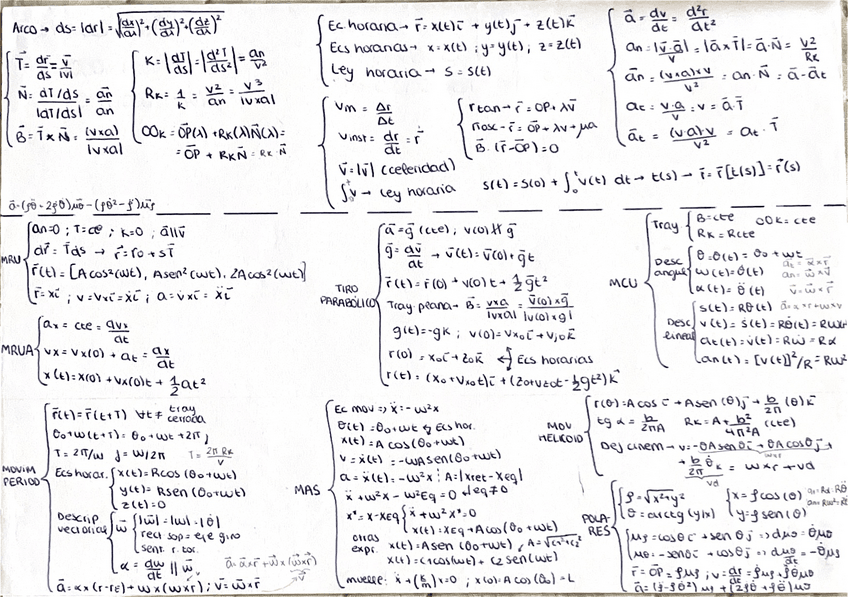 Arco → ds = |dr| = √(dx/dλ)² + (dy/dλ)² + (dz/dλ)²
T⃗ = dr⃗/ds = v⃗/|v|
N⃗ = dT/ds / |dT/ds| = a⃗n/an
B⃗ = T⃗ x N⃗ = (vxa)/|vxa|
K = |dT/ds| = |d²r/ds²| = an/v²
RK = 1/K = v²/an = v³/|vxa|
OOK = OP⃗(λ) + RK(λ)N⃗(λ) =
= OP⃗ + RKN⃗ = RK·N⃗
Ec. horaria → r⃗ = x(t)i⃗ + y(t)j⃗ + z(t)k⃗
Ecs horarias → x = x(t); y = y(t); z = z(t)
Ley horaria → s = s(t)
Vm = Δr/Δt
Vinst = dr/dt = ṙ
v⃗ = |v⃗| (celeridad)
∫v → Ley horaria
rtan → r⃗ = OP + λv⃗
Πosc → r⃗ = OP + λv + μa
B⃗·(r⃗ - OP) = 0
s(t) = s(0) + ∫₀ᵗ v(t) dt → t(s) → r⃗ = r⃗[t(s)] = r⃗(s)
a⃗ = dv⃗/dt = d²r⃗/dt²
an = |v⃗xa⃗|/v = |a⃗xT⃗| = a⃗·N⃗ = v²/RK
a⃗n = (vxa)xv/v² = an·N⃗ = a⃗ - a⃗t
at = v·a/v = v̇ = a⃗·T⃗
a⃗t = (v·a)v/v² = at·T⃗
MRU
an = 0; T = cte; K = 0; a⃗ ∥ v⃗
dr⃗ = T⃗ds → r⃗ = r⃗0 + sT⃗
r⃗(t) = [A cos²(wt), A sen²(wt), 2A cos²(wt)]
r⃗ = xi⃗; v = vxi⃗ = ẋi⃗; a = v̇xi⃗ = ẍi⃗
MRUA
ax = cte = dvx/dt
vx = vx(0) + at = dx/dt
x(t) = x(0) + vx(0)t + 1/2 at²
TIRO PARABÓLICO
a⃗ = g⃗ (cte); v(0) ∦ g⃗
g⃗ = dv⃗/dt → v⃗(t) = v⃗(0) + g⃗t
r⃗(t) = r⃗(0) + v(0)t + 1/2 g⃗t²
Tray. plana → B⃗ = vxa/|vxa| = v⃗(0)xg⃗/|v(0)xg|
g(t) = -gk; v(0) = vx0i⃗ + vz0k⃗
r(0) = x0i⃗ + z0k⃗ Ecs horarias
r(t) = (x0 + vx0t)i⃗ + (z0 + vz0t - 1/2 gt²)k⃗
MCU
Tray. B⃗ = cte OOK = cte
RK = Rcte
Desc angular
θ = θ(t) = θ0 + wt
w(t) = θ̇(t)
α(t) = θ̈(t)
at = α⃗xr⃗
an = w⃗xv⃗
v⃗ = w⃗xr⃗
Desc lineal
s(t) = Rθ(t)
v(t) = ṡ(t) = Rθ̇(t) = Rw
at(t) = v̇(t) = Rẇ = Rα
an(t) = [v(t)]²/R = Rw²
MOVIM PERIOD
r⃗(t) = r⃗(t+T) ∀t ≠ tray cerrada
θ0 + w(t+T) = θ0 + wt + 2π;
T = 2π/w f = w/2π T = 2πRK/v
Ecs horar. x(t) = R cos(θ0 + wt)
y(t) = R sen(θ0 + wt)
z(t) = 0
Descrip vectorias w⃗
|w⃗| = |w| = |θ̇|
rect. sop = eje giro
sent. r. tor.
α = dw/dt ∥ w⃗
a⃗ = αx(r-re) + wx(wxr); v⃗ = w⃗xr⃗
MAS
Ec mov → ẍ = -w²x
θ(t) = θ0 + wt Ec hor.
x(t) = A cos(θ0 + wt)
v = ẋ(t) = -wA sen(θ0 + wt)
a = ẍ(t) = -w²x; A = |xret - xeq|
ẍ + w²x - w²Eq = 0 eq ≠ 0
x* = x - xEq ẍ + w²x* = 0
x(t) = xEq + A cos(θ0 + wt)
otras expr.
x(t) = A sen(θ0 + wt), A = √c1² + c2²
x(t) = c1 cos(wt) + c2 sen(wt)
muelle: ẍ + (k/m)x = 0; x(0) = A cos(θ0) = L
MOV HELICOID
r(θ) = A cos i⃗ + A sen(θ)j⃗ + b/2π (θ)k⃗
tg α = b/2πA RK = A + b²/4π²A (cte)
Des cinem → v = -θ̇A senθi⃗ + θ̇A cosθj⃗ +
+ b/2π θ̇k = wxr + vd
POLARES
ρ = √x²+y²
θ = arctg(y/x)
x = ρ cos(θ)
y = ρ sen(θ)
μρ = cosθi⃗ + senθj⃗ => dμρ = θ̇μθ
μθ = -senθi⃗ + cosθj⃗ => dμθ/dt = -θ̇μρ
r⃗ = OP⃗ = ρμρ; v = dr/dt = ρ̇μρ + ρθ̇μθ
a⃗ = (ρ̈ - ρθ̇²)μρ + (2ρ̇θ̇ + ρθ̈)μθ